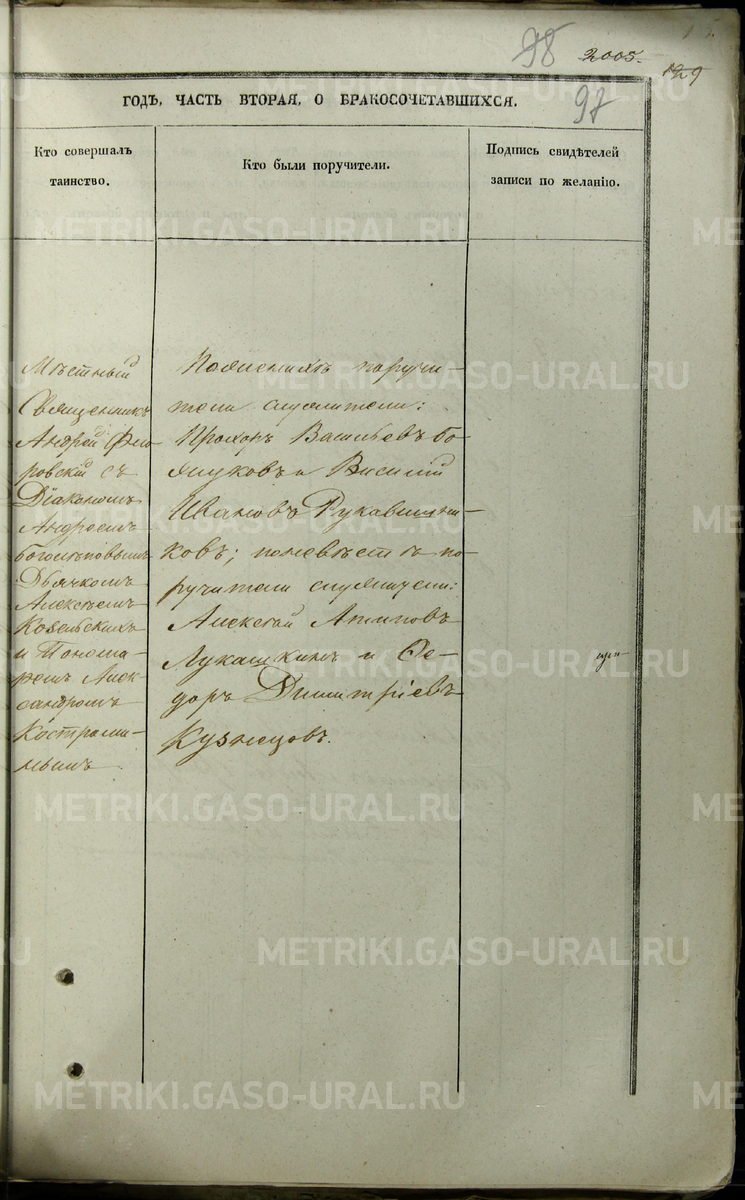 98 2005.
129
ГОДЪ, ЧАСТЬ ВТОРАЯ, О БРАКОСОЧЕТАВШИХСЯ.
97
Кто совершалъ
таинство.
Кто были поручители.
Подпись свидѣтелей
записи по желанію.
Мѣстный
Священникъ
Андрей Фло-
ровскій съ
Діакономъ
Андреемъ
Боголѣповымъ
Дьячкомъ
Алексѣемъ
Козельскихъ
и Понома-
ремъ Алек-
сандромъ
Костроми-
нымъ
По женихѣ поручи-
тели служители:
Прохоръ Васильевъ
и Василій
Ивановъ Рукавишни-
ковъ; по невѣстѣ по-
ручители служители:
Алексѣй Антиповъ
Лукашкинъ и Ѳе-
доръ Димитріевъ
Кузнецовъ.
METRIKI.GASO-URAL.RU